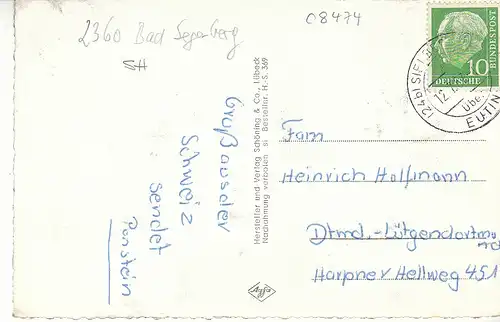 2360 Bad Segeberg
08474
SH
Gruß aus der
Schweiz
sendet
Ponstein
Hersteller und Verlag Schöning & Co., Lübeck
Nachahmung verboten si Bestellnr. H.-S. 369
DEUTSCHE
BUNDESPOST
10
(24b) SIEL
12.
über
EUTIN
Fam
Heinrich Hoffmann
Dtmd.-Lütgendortmund
Harpner Hellweg 451
Agfa